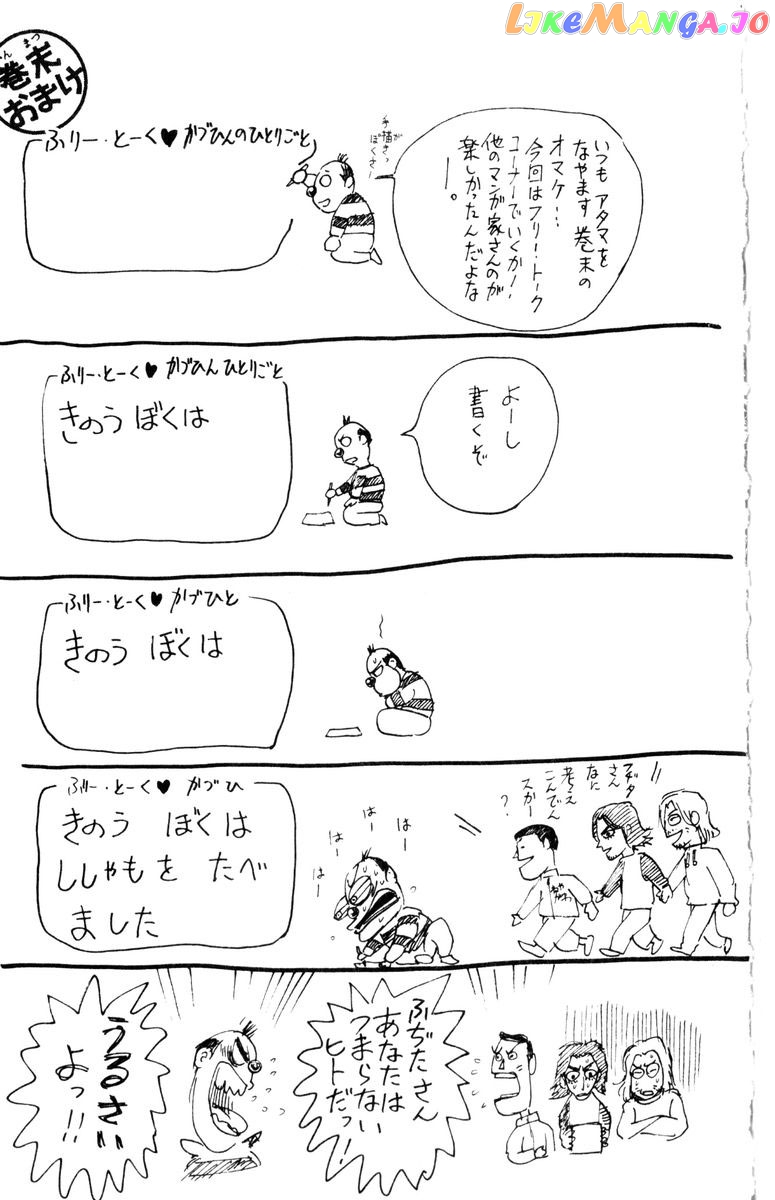 LIKEMANGA.IO
巻末
おまけ
いつも アタマを
なやます 巻末の
オマケ…
今回はフリー・トーク
コーナーでいくか!
他のマンガ家さんのが
楽しかったんだよな
ー。
ふりー・とーく♥かぶひんのひとりごと
よーし
書くぞ
ふりー・とーく♥かぶひんひとりごと
きのう ぼくは
ふりー・とーく♥かぶひと
きのう ぼくは
フヂタ
さん
なに
考え
こんでん
スカー
?
はー
はー
はー
はー
ふりー・とーく♥かづひ
きのう ぼくは
ししゃもを たべ
ました
ふぢたさん
あなたは
つまらない
ヒトだっ!
うるさい
よっ!!